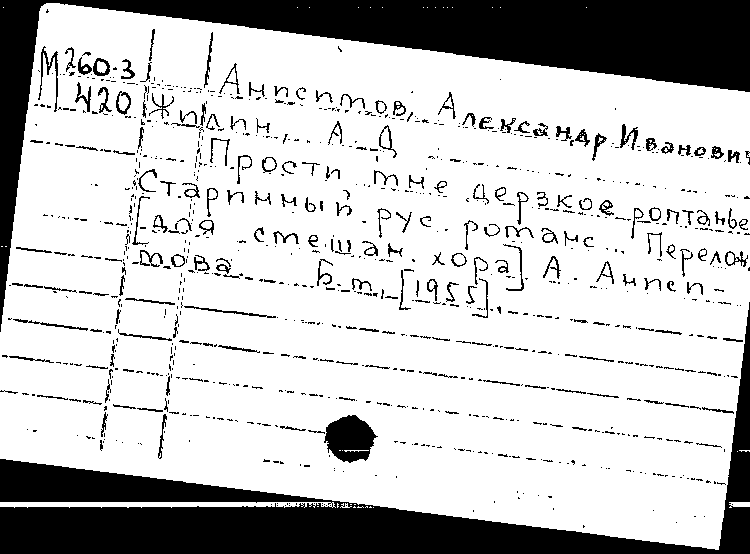 М 260-3
420
Анисимов, Александр Иванович
Жилин, А. Д
Прости мне дерзкое роптанье
Старинный рус. романс... Перелож.
[для смешан. хора] А. Аниси-
мова. Б.м., [1955].